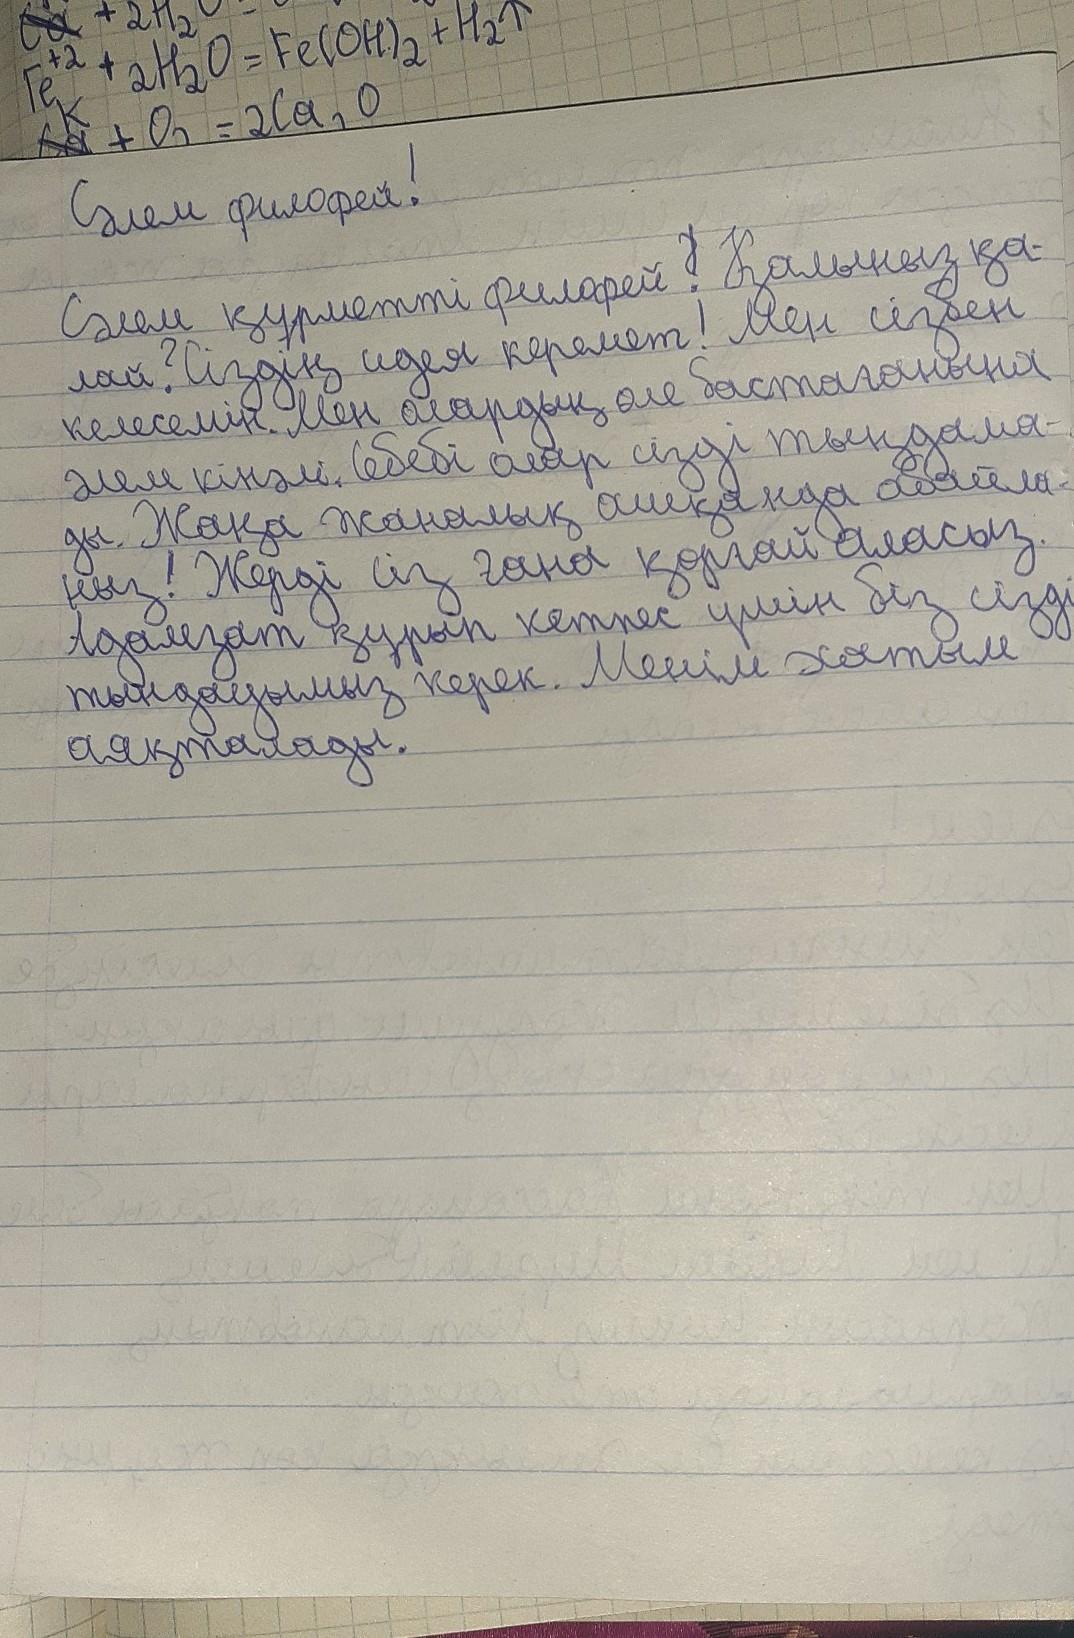 + 2H₂O =
Fe⁺² + 2H₂O = Fe(OH)₂ + H₂↑
K + O₂ = 2Ca₂O
Сәлем филофей!
Сәлем құрметті филофей! Қалыныз қа-
лай? Сіздің идея керемет! Мен сізбен
келесемін. Мен олардың өле бастағанына
әлем кінәлі. Себебі олар сізді тыңдама-
ды. Жаңа жаналық ашқанда абайла-
ныз! Жерді сіз ғана қорғай аласыз.
Адамзат құрып кетпес үшін біз сізді
тындауымыз керек. Менім хатым
аяқталады.